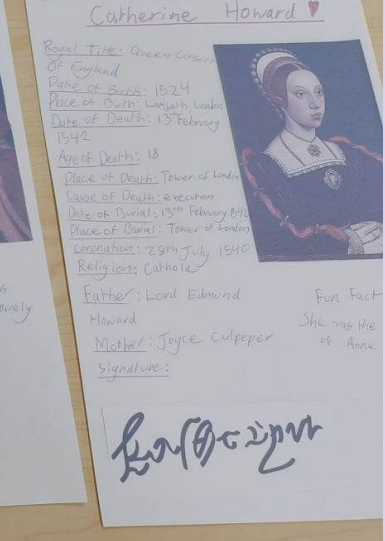 Catherine Howard ♥
Royal Title: Queen Consort
of England
Date of Birth: 1524
Place of Birth: Lambeth, London
Date of Death: 13th February
1542
Age of Death: 18
Place of Death: Tower of London
Cause of Death: execution
Date of Burial: 13th February
Place of Burial: Tower of London
Coronation: 28th July 1540
Religion: Catholic
Father: Lord Edmund
Howard
Mother: Joyce Culpeper
Signature:
Fun Fact
She was the
of Anne